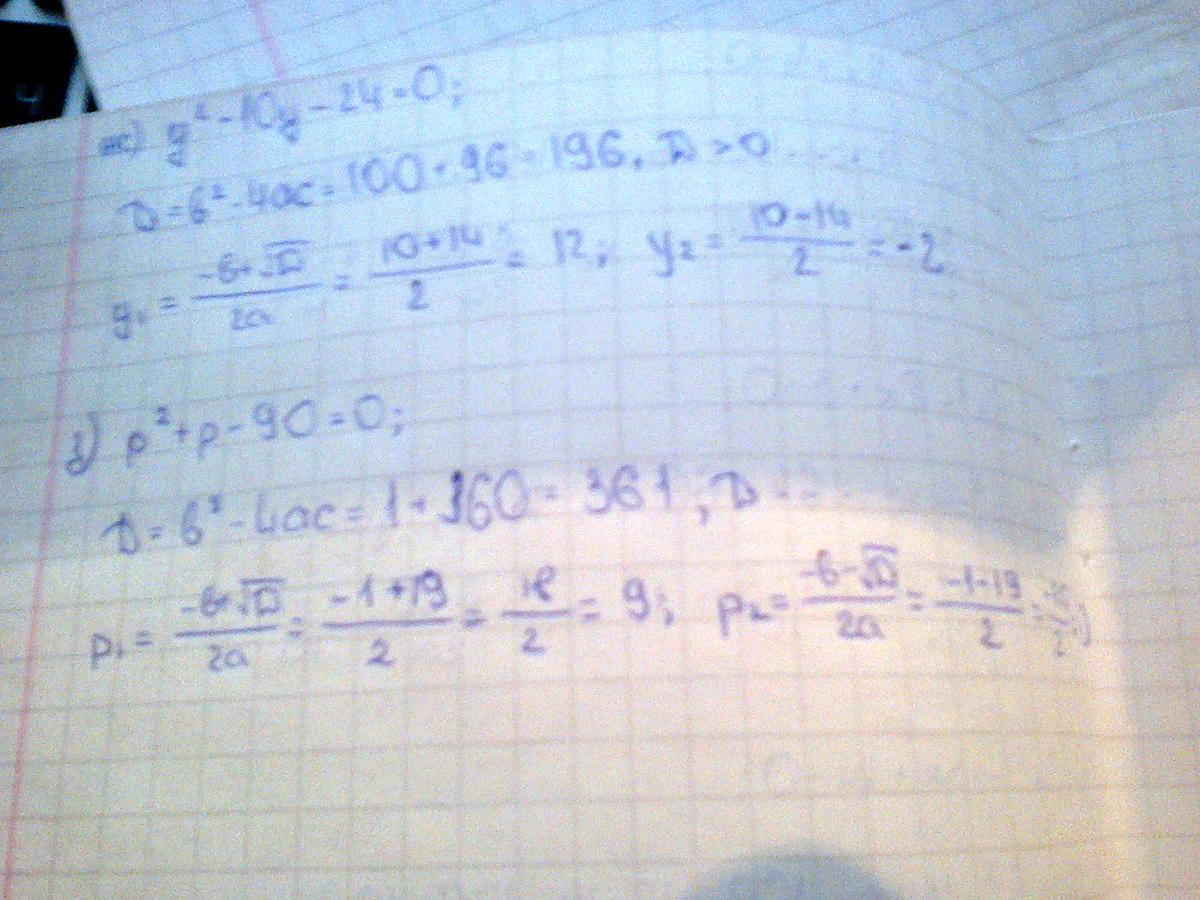 ж) y² - 10y - 24 = 0;
D = b² - 4ac = 100 + 96 = 196, D > 0
y₁ = (-b+√D)/2a = (10+14)/2 = 12; y₂ = (10-14)/2 = -2
з) p² + p - 90 = 0;
D = b² - 4ac = 1 + 360 = 361, D
p₁ = (-b+√D)/2a = (-1+19)/2 = 18/2 = 9; p₂ = (-b-√D)/2a = (-1-19)/2 =